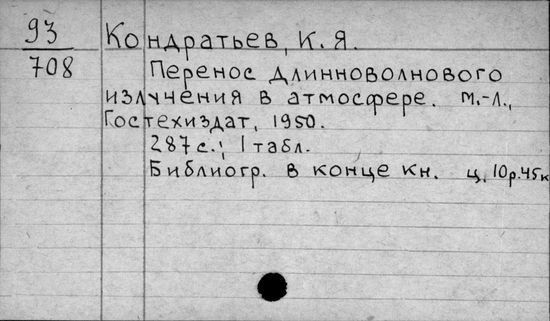 93 Кондратьев, К. Я.
708 Перенос длинноволнового
излучения в атмосфере. М.-Л.,
Гостехиздат, 1950.
287 с.; 1 табл.
Библиогр. в конце кн. ц. 10р.45к